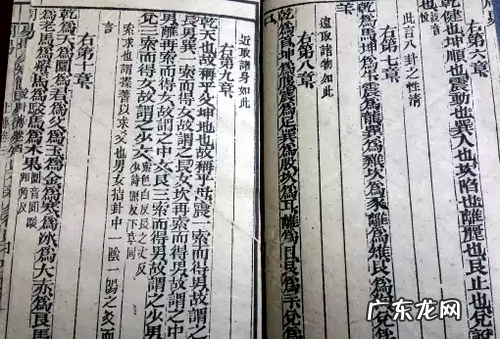 右第六章
乾健也坤順也震動也巽入也坎陷也離麗也艮止也兌說
此言八卦之性情
右第七章
乾為馬坤為牛震為龍巽為雞坎為豕離為雉艮為狗兌為
羊
遠取諸物如此
右第八章
乾為首坤為腹震為足巽為股坎為耳離為目艮為手兌為
口
近取諸身如此
右第九章
乾天也故稱乎父坤地也故稱乎母震一索而得男故謂之
長男巽一索而得女故謂之長女坎再索而得男故謂之中
男離再索而得女故謂之中女艮三索而得男故謂之少男
兌三索而得女故謂之少女 索色白反長之丈反
少詩照反下章同
索求也謂揲蓍以求爻也男女指卦中一陰一陽之爻而
言
右第十章
乾為天為圜為君為父為玉為金為寒為冰為大赤為良馬
為老馬為瘠馬為駁馬為木果 圜音圓駁
邦角反
广东龙网